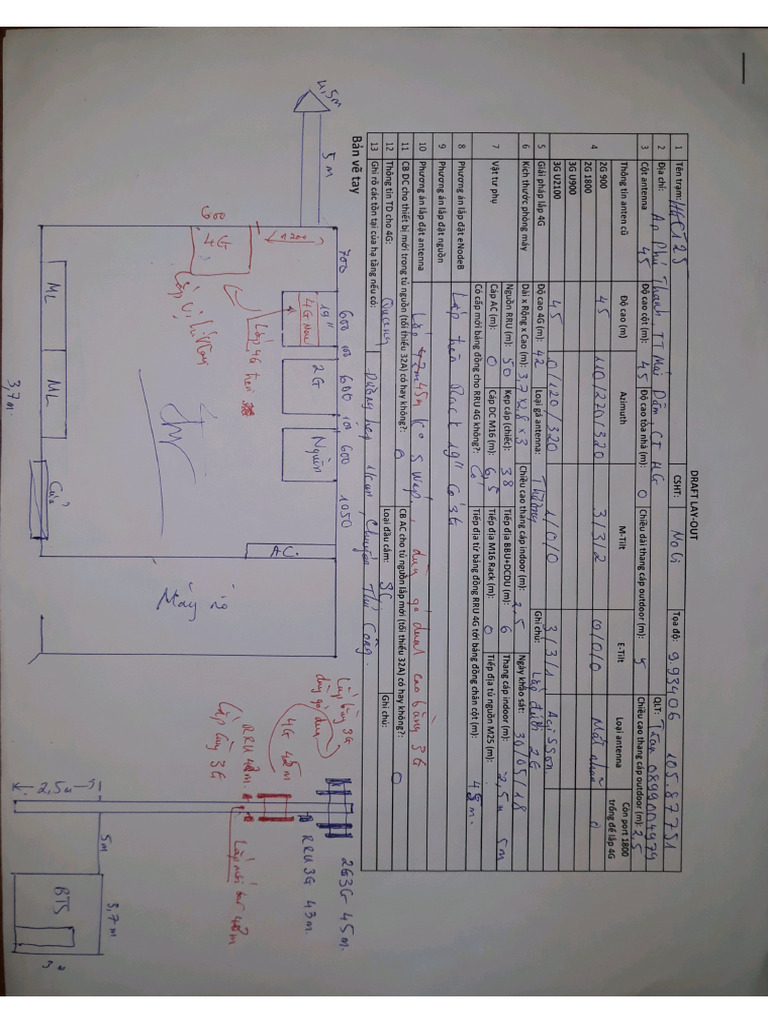 DRAFT LAY-OUT
1 Tên trạm: HGC125 CSHT: Tọa độ: 9.93406 105.87751
2 Địa chỉ: Ấp Phú Thạnh, TT Mái Dầm, CT HG QLT: 0899004979
3 Cột antenna 45 Độ cao cột (m): 45 Độ cao tòa nhà (m): 0 Chiều dài thang cáp outdoor (m): 5 Chiều cao thang cáp outdoor (m): 2,5
4 Thông tin anten cũ Độ cao (m) Azimuth M-Tilt E-Tilt Loại antenna Còn port 1800 trống để lắp 4G
2G 900 45 110/220/320 3/3/2 0/0/0 0
2G 1800
3G U900
3G U2100 45 0/120/320 1/0/0 3/3/1
5 Giải pháp lắp 4G Độ cao 4G (m): 42 Loại gá antenna: Thường Ghi chú: Lắp dưới 2G
6 Kích thước phòng máy Dài x Rộng x Cao (m): 3,7 x 2,8 x 3 Chiều cao thang cáp indoor (m): 2,5 Ngày khảo sát: 30/05/18
7 Vật tư phụ Nguồn RRU (m): 50 Kẹp cáp (chiếc): 38 Tiếp địa BBU+DCDU (m): 6 Thang cáp indoor (m): 2,5m 5m
Cáp AC (m): 0 Cáp DC M16 (m): 6,5 Tiếp địa M16 Rack (m): 0 Tiếp địa tủ nguồn M25 (m):
Có cấp mới bảng đồng cho RRU 4G không?: Có Tiếp địa từ bảng đồng RRU 4G tới bảng đồng chân cột (m): 45m.
8 Phương án lắp đặt eNodeB Lắp trên Rack 19" có 3G
9 Phương án lắp đặt nguồn
10 Phương án lắp đặt antenna Lắp 45m, dùng gá dual cao bằng 3G
11 CB DC cho thiết bị mới trong tủ nguồn (tối thiểu 32A) có hay không?: 0 CB AC cho tủ nguồn lắp mới (tối thiểu 32A) có hay không?: 0
12 Thông tin TD cho 4G: Quang Loại đầu cắm: SC Ghi chú:
13 Ghi rõ các tồn tại của hạ tầng nếu có: Đường hẹp, chuyển Thủ Công.
Bản vẽ tay
4,5m
5m
700 600 100 600 100 600 1050
600
4G
19"
4G New
2G
Nguồn
Lắp 4G trên
Lắp vị trí này
ML
ML
Cửa
3,7m.
AC.
Máy nổ
Lắp bằng 3G
dùng gá dual
4G 45m
RRU 42m
Lắp cùng 3G
2G3G 45m.
RRU 3G 43m.
2,5m
5m
BTS
3,7m